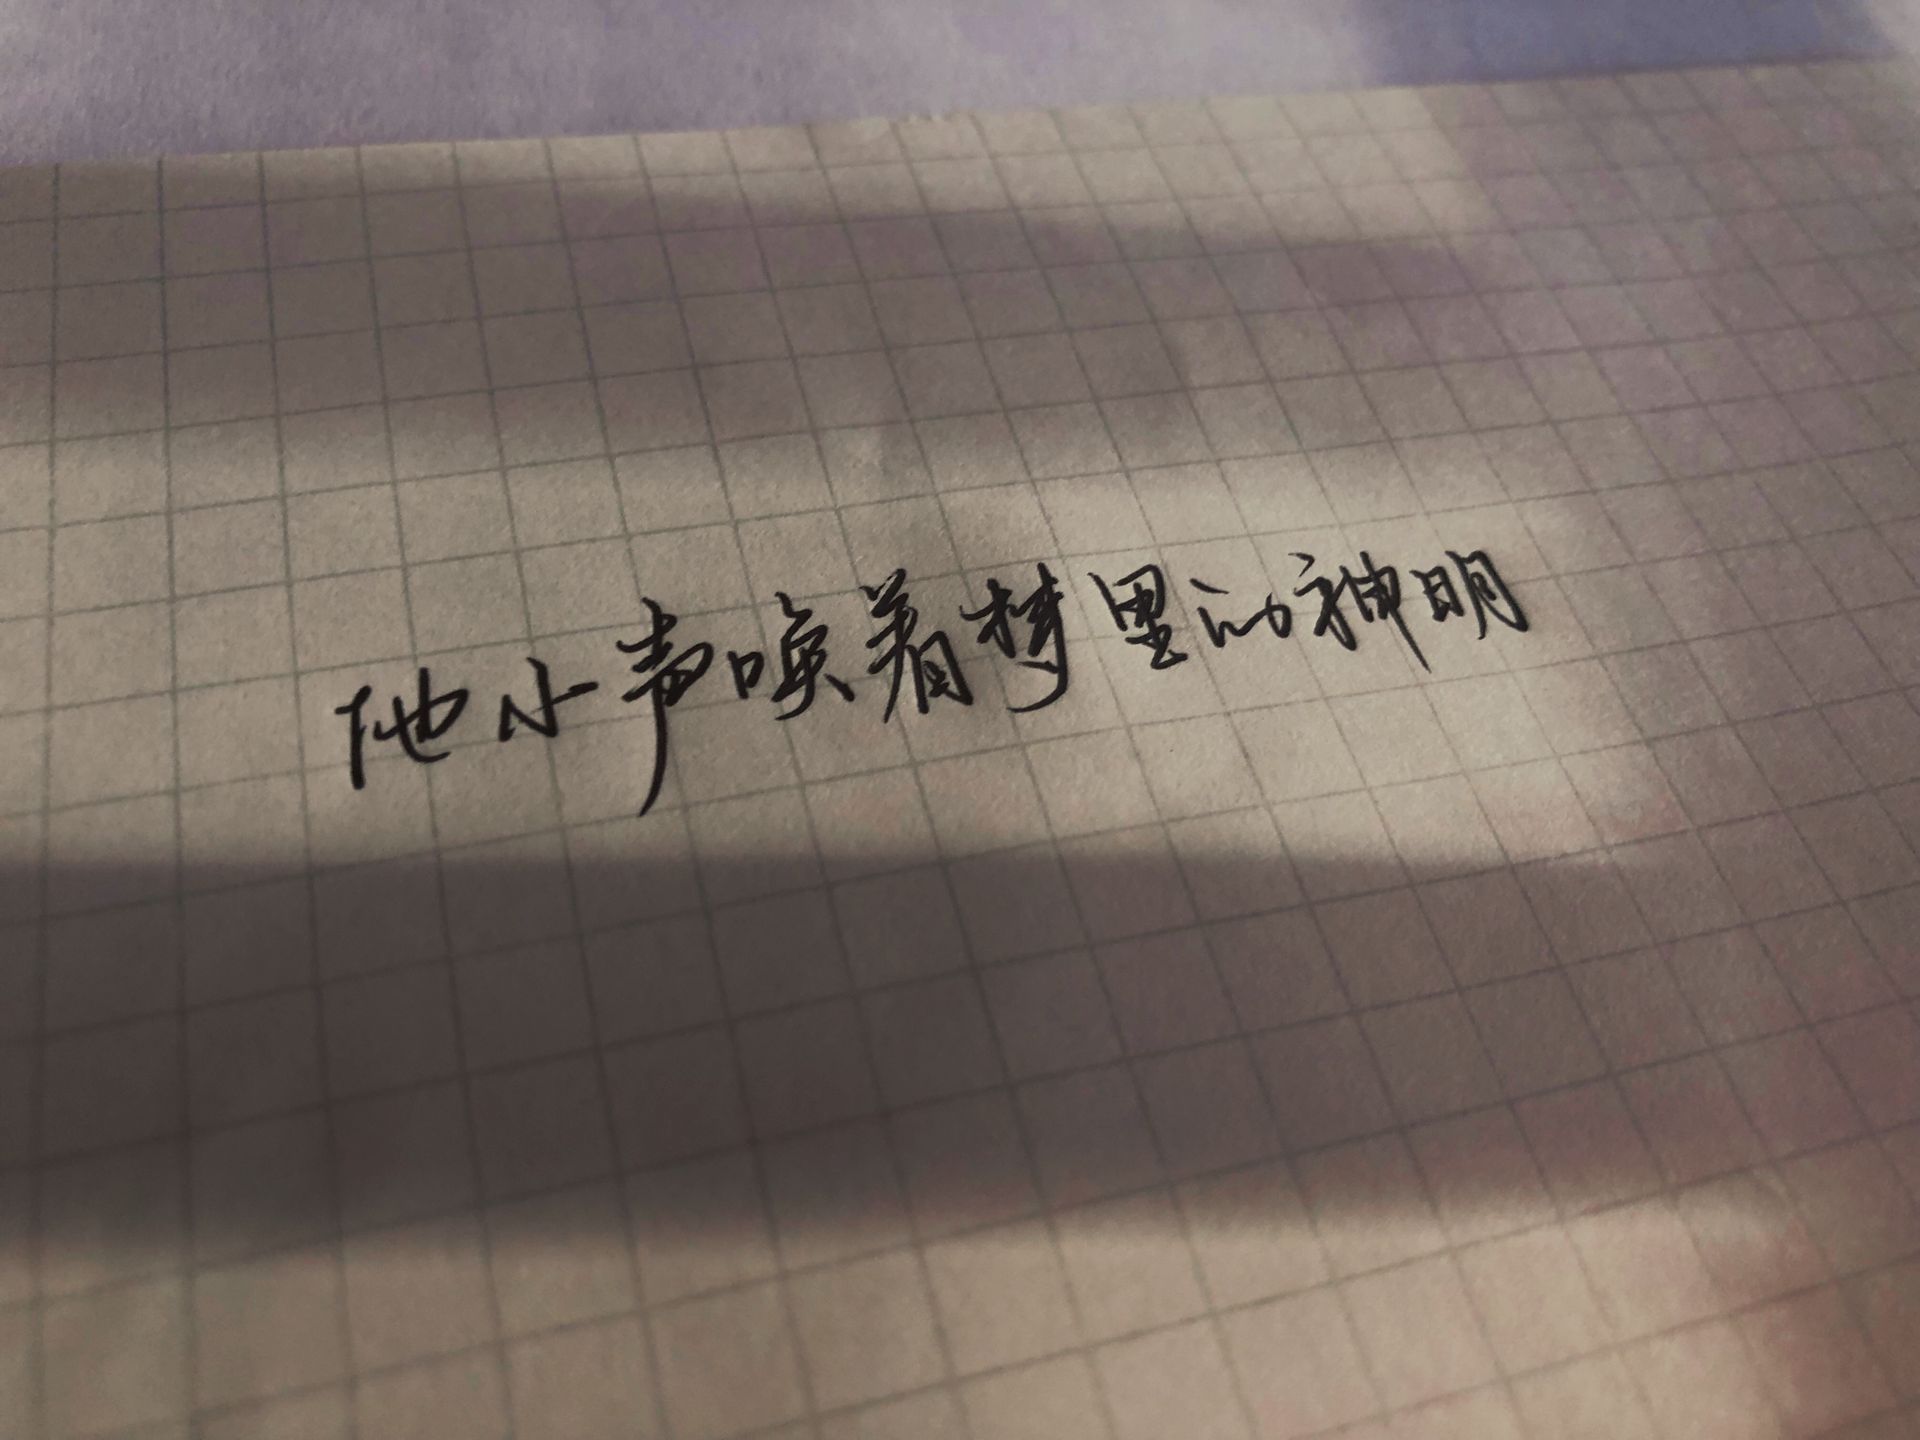 他小声唤着梦里的神明